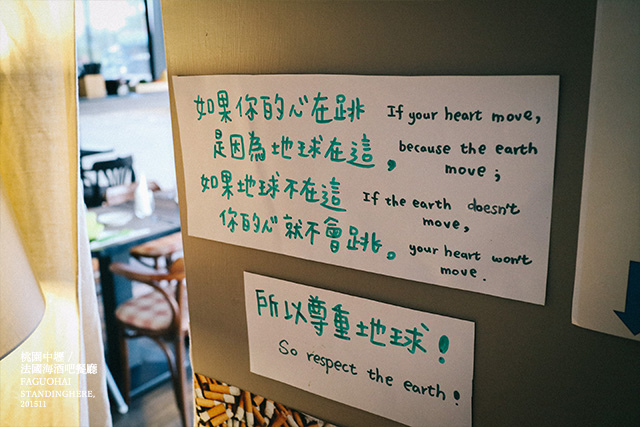 如果你的心在跳
If your heart move,
是因為地球在這，
because the earth
move;
如果地球不在這
If the earth doesn't
move,
你的心就不會跳。
your heart won't
move.
所以尊重地球！
So respect the earth!
桃園中壢 /
法國海酒吧餐廳
FAGUOHAI
STANDINGHERE,
201511